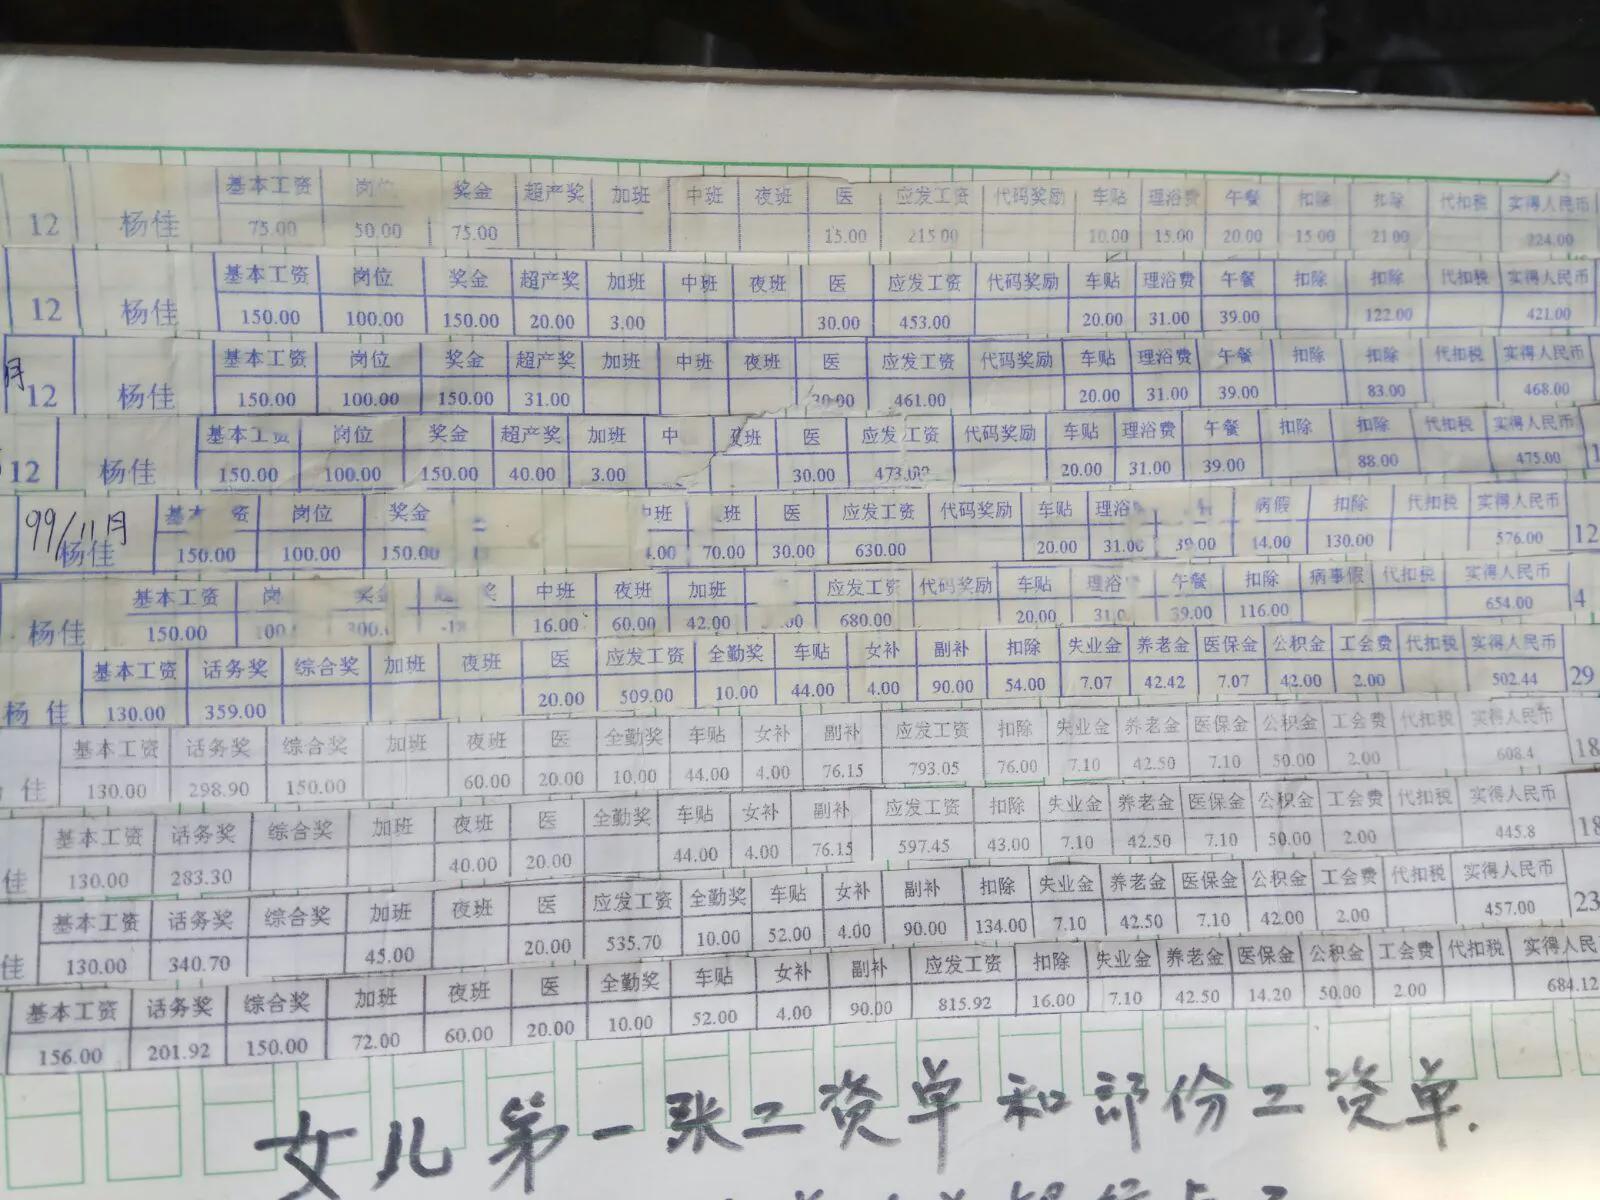 基本工资 岗位 奖金 超产奖 加班 中班 夜班 医 应发工资 代码奖励 车贴 理浴费 午餐 扣除 扣除 代扣税 实得人民币
12 杨佳 75.00 50.00 75.00 15.00 215.00 10.00 15.00 20.00 15.00 21.00 224.00
基本工资 岗位 奖金 超产奖 加班 中班 夜班 医 应发工资 代码奖励 车贴 理浴费 午餐 扣除 扣除 代扣税 实得人民币
12 杨佳 150.00 100.00 150.00 20.00 3.00 30.00 453.00 20.00 31.00 39.00 122.00 421.00
基本工资 岗位 奖金 超产奖 加班 中班 夜班 医 应发工资 代码奖励 车贴 理浴费 午餐 扣除 扣除 代扣税 实得人民币
月 12 杨佳 150.00 100.00 150.00 31.00 30.00 461.00 20.00 31.00 39.00 83.00 468.00
基本工资 岗位 奖金 超产奖 加班 中 夜班 医 应发工资 代码奖励 车贴 理浴费 午餐 扣除 扣除 代扣税 实得人民币
12 杨佳 150.00 100.00 150.00 40.00 3.00 30.00 473.00 20.00 31.00 39.00 88.00 475.00 1
99/11月 基本 资 岗位 奖金 班 班 医 应发工资 代码奖励 车贴 理浴 病假 扣除 代扣税 实得人民币
杨佳 150.00 100.00 150.00 4.00 70.00 30.00 630.00 20.00 31.00 39.00 14.00 130.00 576.00 12
基本工资 岗 奖金 奖 中班 夜班 加班 应发工资 代码奖励 车贴 理浴 午餐 扣除 病事假 代扣税 实得人民币
杨佳 150.00 100. 300. 16.00 60.00 42.00 .00 680.00 20.00 31.0 39.00 116.00 654.00 4
基本工资 话务奖 综合奖 加班 夜班 医 应发工资 全勤奖 车贴 女补 副补 扣除 失业金 养老金 医保金 公积金 工会费 代扣税 实得人民币
杨佳 130.00 359.00 20.00 509.00 10.00 44.00 4.00 90.00 54.00 7.07 42.42 7.07 42.00 2.00 502.44 29
基本工资 话务奖 综合奖 加班 夜班 医 全勤奖 车贴 女补 副补 应发工资 扣除 失业金 养老金 医保金 公积金 工会费 代扣税 实得人民币
佳 130.00 298.90 150.00 60.00 20.00 10.00 44.00 4.00 76.15 793.05 76.00 7.10 42.50 7.10 50.00 2.00 608.4 18
基本工资 话务奖 综合奖 加班 夜班 医 全勤奖 车贴 女补 副补 应发工资 扣除 失业金 养老金 医保金 公积金 工会费 代扣税 实得人民币
佳 130.00 283.30 40.00 20.00 44.00 4.00 76.15 597.45 43.00 7.10 42.50 7.10 50.00 2.00 445.8 18
基本工资 话务奖 综合奖 加班 夜班 医 应发工资 全勤奖 车贴 女补 副补 扣除 失业金 养老金 医保金 公积金 工会费 代扣税 实得人民币
佳 130.00 340.70 45.00 20.00 535.70 10.00 52.00 4.00 90.00 134.00 7.10 42.50 7.10 42.00 2.00 457.00 23
基本工资 话务奖 综合奖 加班 夜班 医 全勤奖 车贴 女补 副补 应发工资 扣除 失业金 养老金 医保金 公积金 工会费 代扣税 实得人民
156.00 201.92 150.00 72.00 60.00 20.00 10.00 52.00 4.00 90.00 815.92 16.00 7.10 42.50 14.20 50.00 2.00 684.12
女儿第一张工资单和部份工资单.